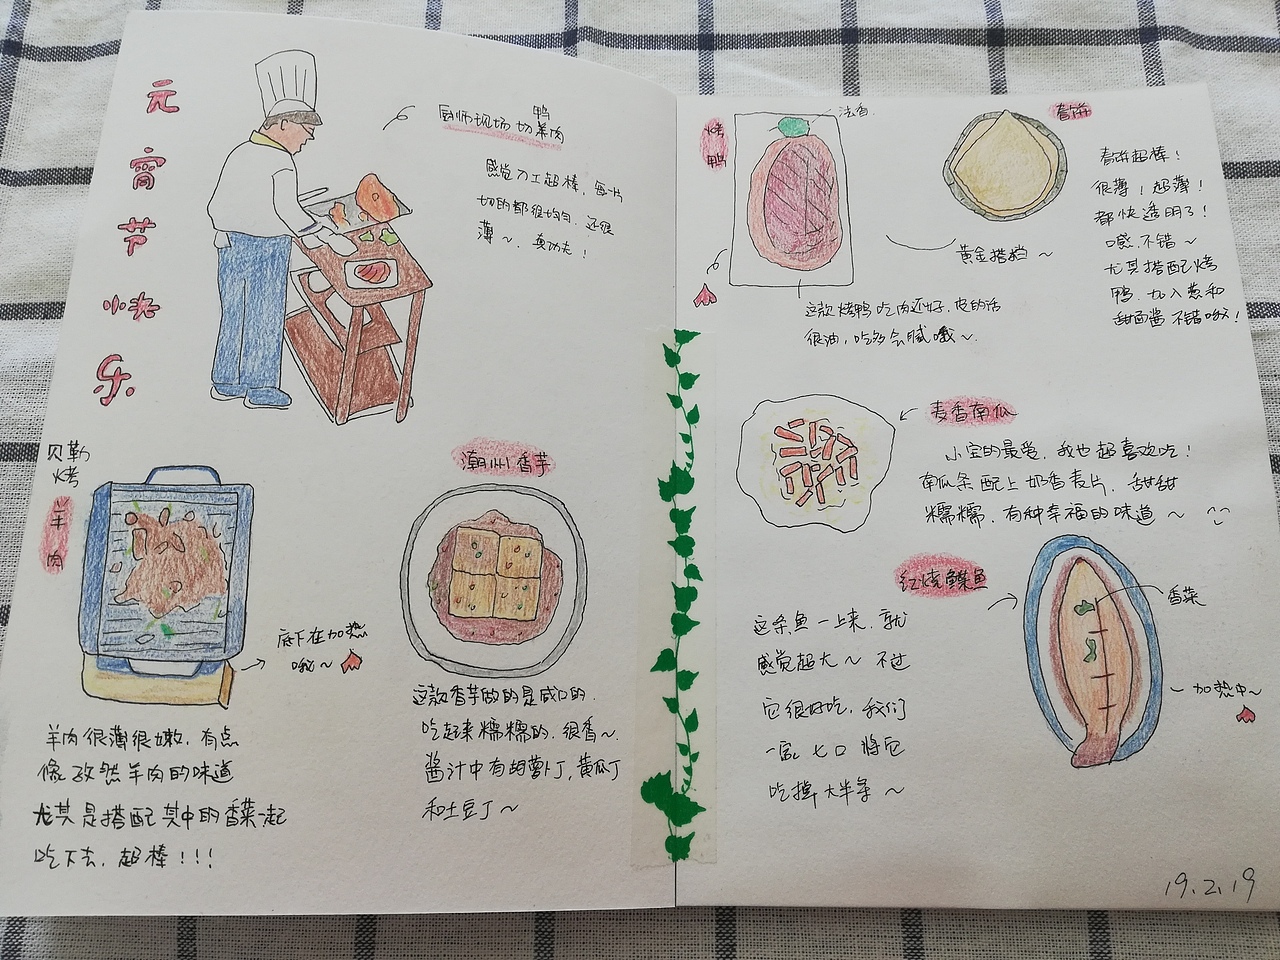 元
宵
节
快
乐
鸭
厨师现场切菜肉
感觉刀工超棒，每一片
切的都很均匀，还很
薄~，真功夫！
贝勒
烤
羊
肉
底下在加热
哦~
羊肉很薄很嫩，有点
像孜然羊肉的味道
尤其是搭配其中的香菜一起
吃下去，超棒！！！
潮州香芋
这款香芋做的是咸口的，
吃起来糯糯的，很香~
酱汁中有胡萝卜丁，黄瓜丁
和土豆丁~
烤
鸭
法香
这款烤鸭吃肉还好，皮的话
很油，吃多会腻哦~
黄金搭档~
春饼
春饼超棒！
很薄！超薄！
都快透明了！
口感不错~
尤其搭配烤
鸭，加入葱和
甜面酱不错哦！
麦香南瓜
小宝的最爱，我也超喜欢吃！
南瓜条配上奶香麦片，甜甜
糯糯，有种幸福的味道~
红烧鲽鱼
这条鱼一上来，就
感觉超大~不过
它很好吃，我们
一家七口将它
吃掉大半条~
香菜
加热中~
19.2.19